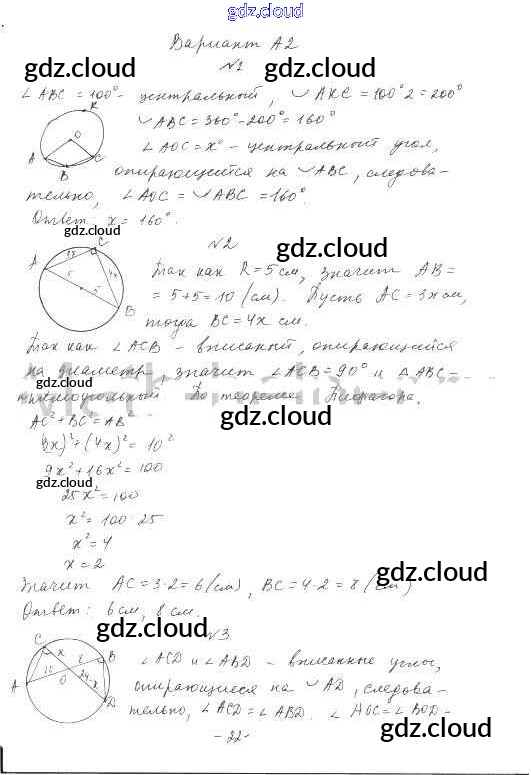 gdz.cloud
Вариант А2
gdz.cloud gdz.cloud
№1
∠ABC = 100° - центральный, ◡AKC = 100°·2 = 200°
K
O
A
B
C
◡ABC = 360° - 200° = 160°
∠AOC = x° - центральный угол,
опирающейся на ◡ABC, следова-
тельно, ∠AOC = ◡ABC = 160°.
Ответ: x = 160°.
gdz.cloud
№2
gdz.cloud
C
3x
4x
A
5
5
B
Так как R = 5 см, значит AB =
= 5+5 = 10 (см). Пусть AC = 3x см,
тогда BC = 4x см.
gdz.cloud
Так как ∠ACB - вписанный, опирающийся
на диаметр, значит ∠ACB = 90° и △ABC -
gdz.cloud
прямоугольный По теореме Пифагора.
AC² + BC = AB
gdz.cloud
(3x)² + (4x)² = 10²
9x² + 16x² = 100
gdz.cloud
25x² = 100
x² = 100 · 25
x² = 4
x = 2
gdz.cloud
Значит AC = 3·2 = 6 (см), BC = 4·2 = 8 (см)
Ответ: 6 см, 8 см.
gdz.cloud
№3
C
x
8
B
A
10
O
24-x
D
∠ACD и ∠ABD - вписанные углы,
опирающиеся на ◡AD, следова-
тельно, ∠ACD = ∠ABD. ∠AOC = ∠BOD -
gdz.cloud
- 22 -
gdz.cloud